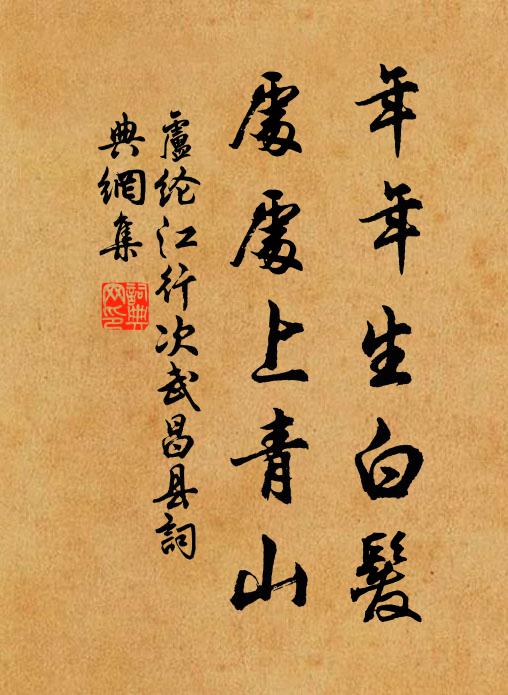 年年生白髮
處處上青山
盧纶江行次武昌县詞
典網集
詞典网印